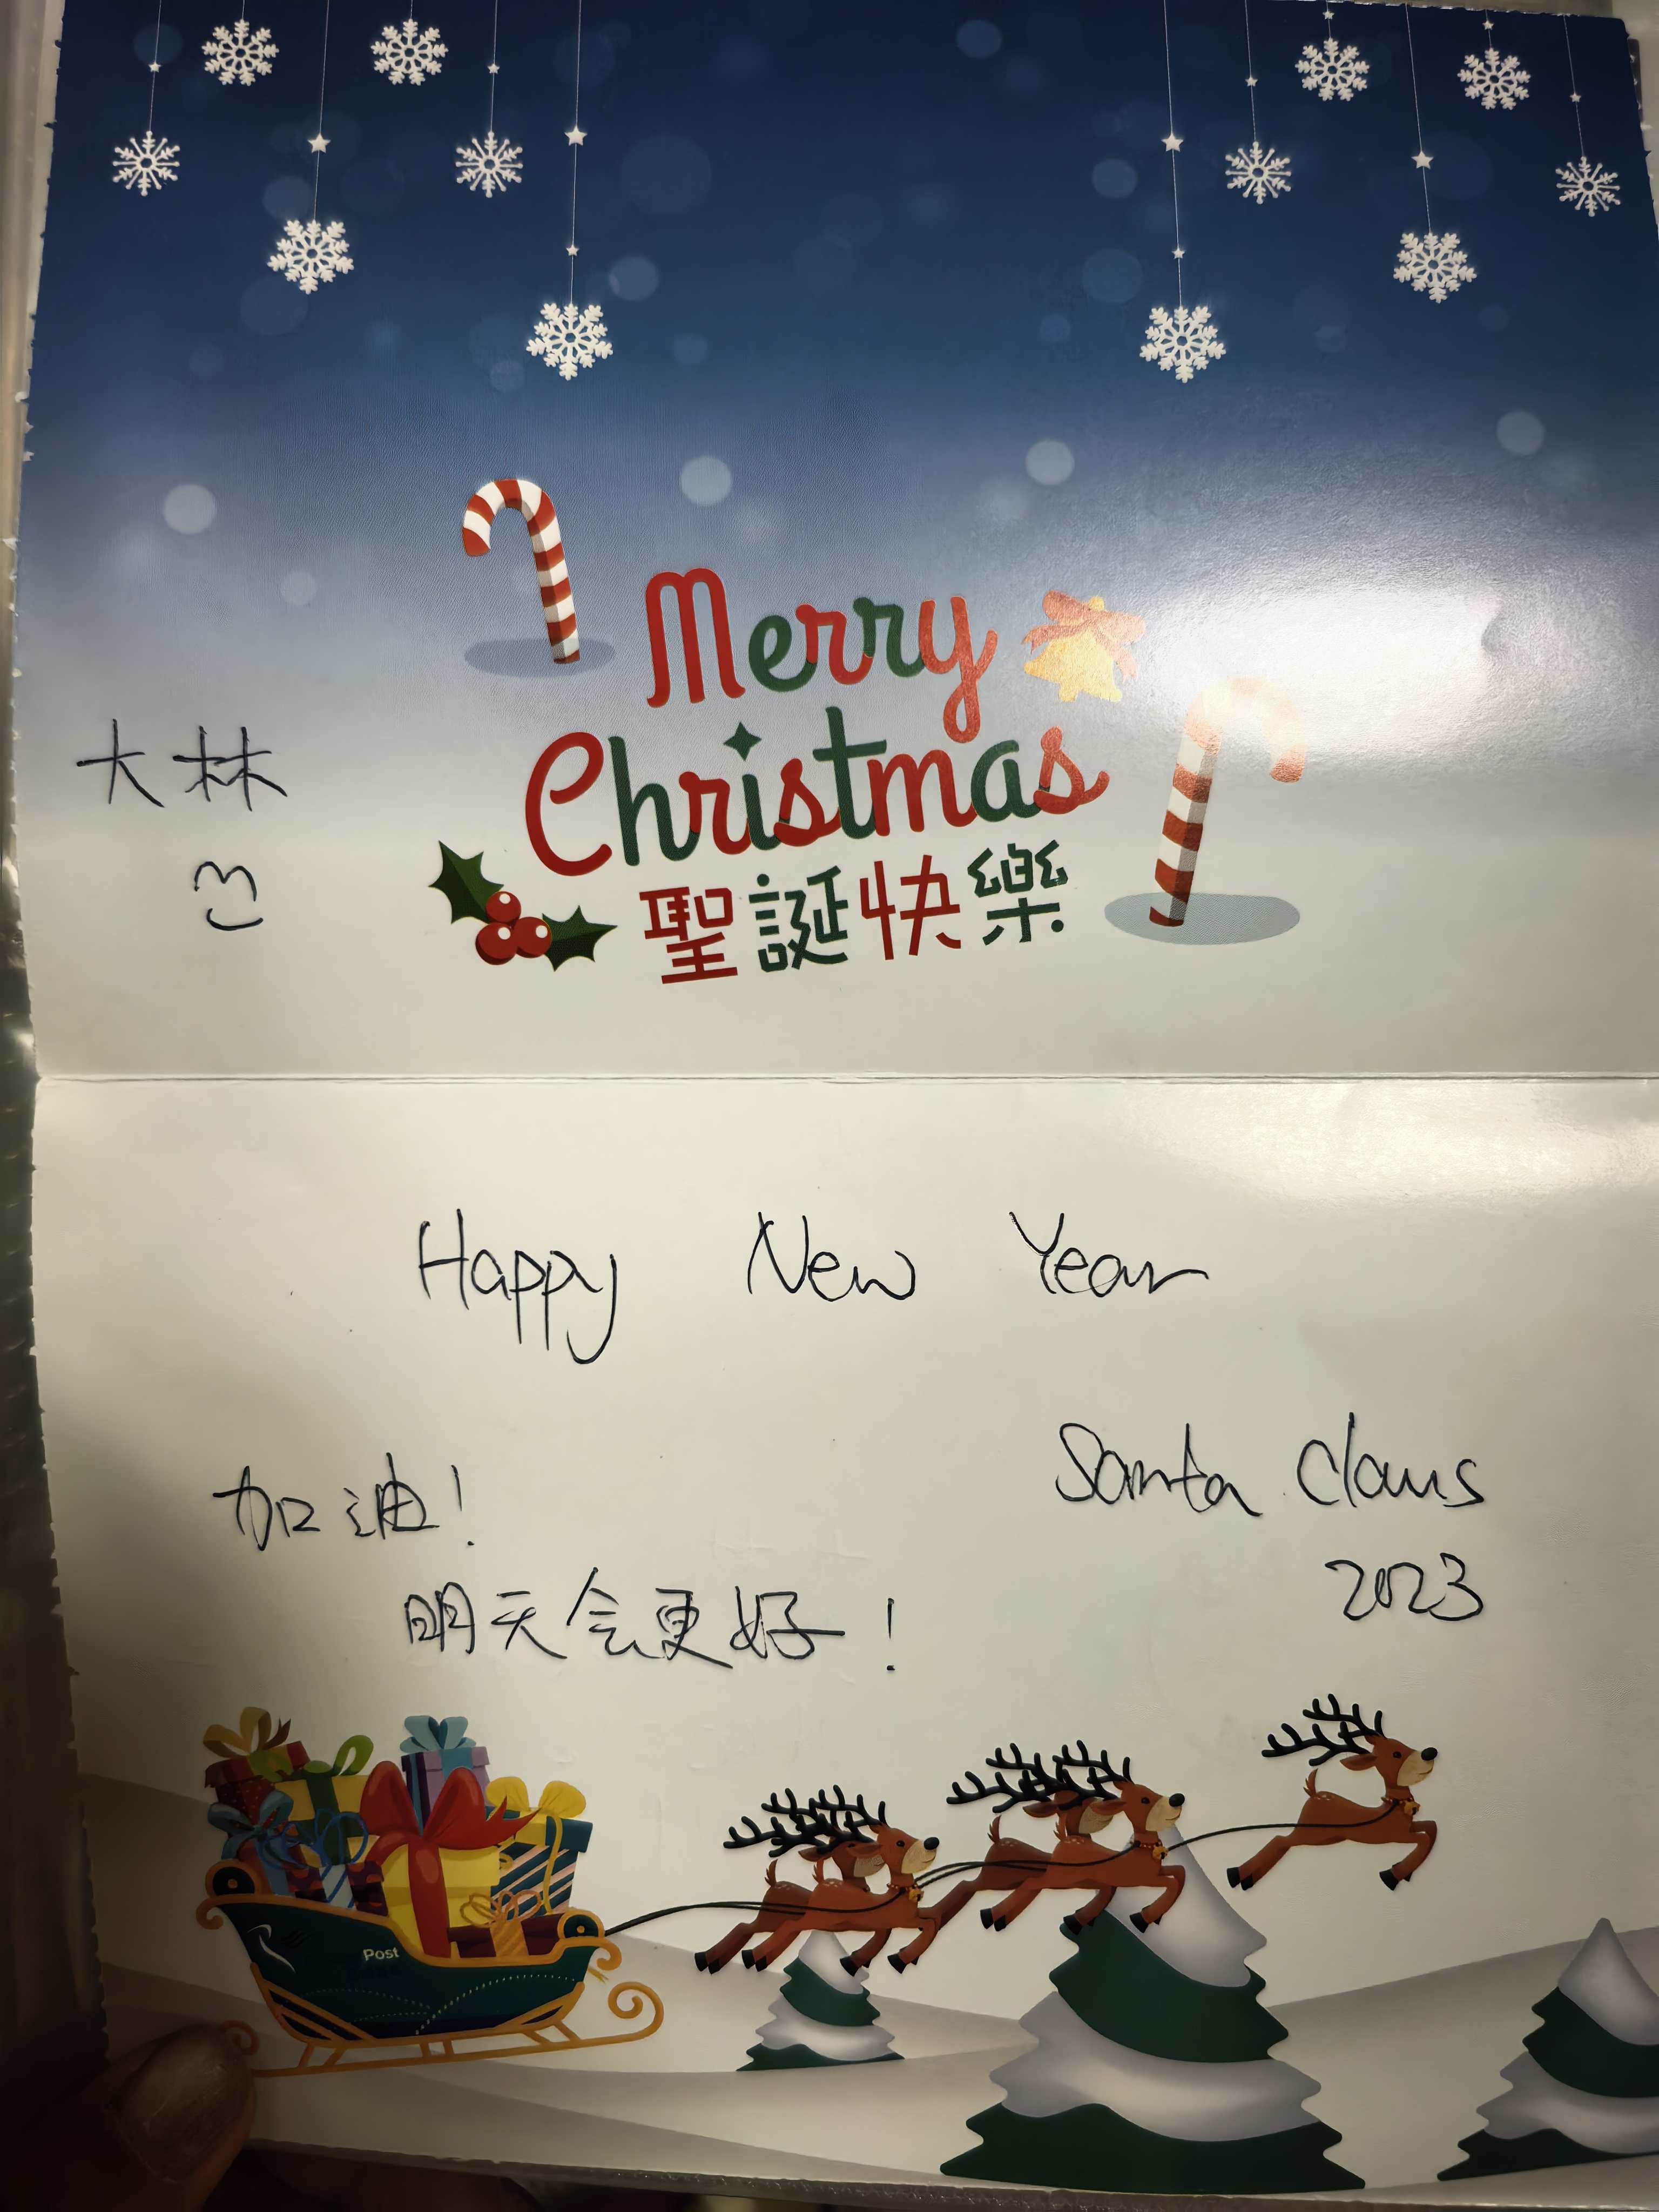 Merry
Christmas
聖誕快樂
大林
Happy New Year
加油!
明天会更好!
Santa Claus
2023
Post